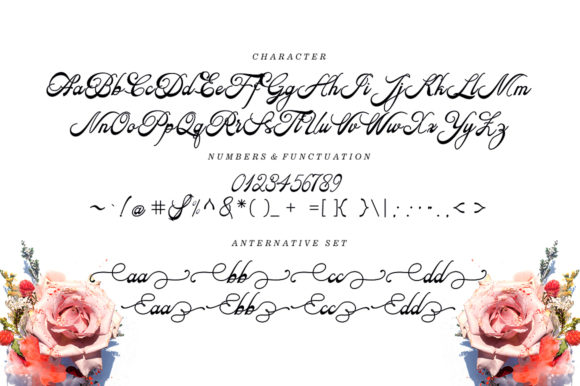 CHARACTER
AaBbCcDdEeFfGgHhIiJjKkLlMm
NnOoPpQqRrSsTtUuVvWwXxYyZz
NUMBERS & FUNCTUATION
0123456789
~`!@#$%^&*()_+ =[]{}\|;:'".,<>
ANTERNATIVE SET
aa bb cc dd
aa bb cc dd